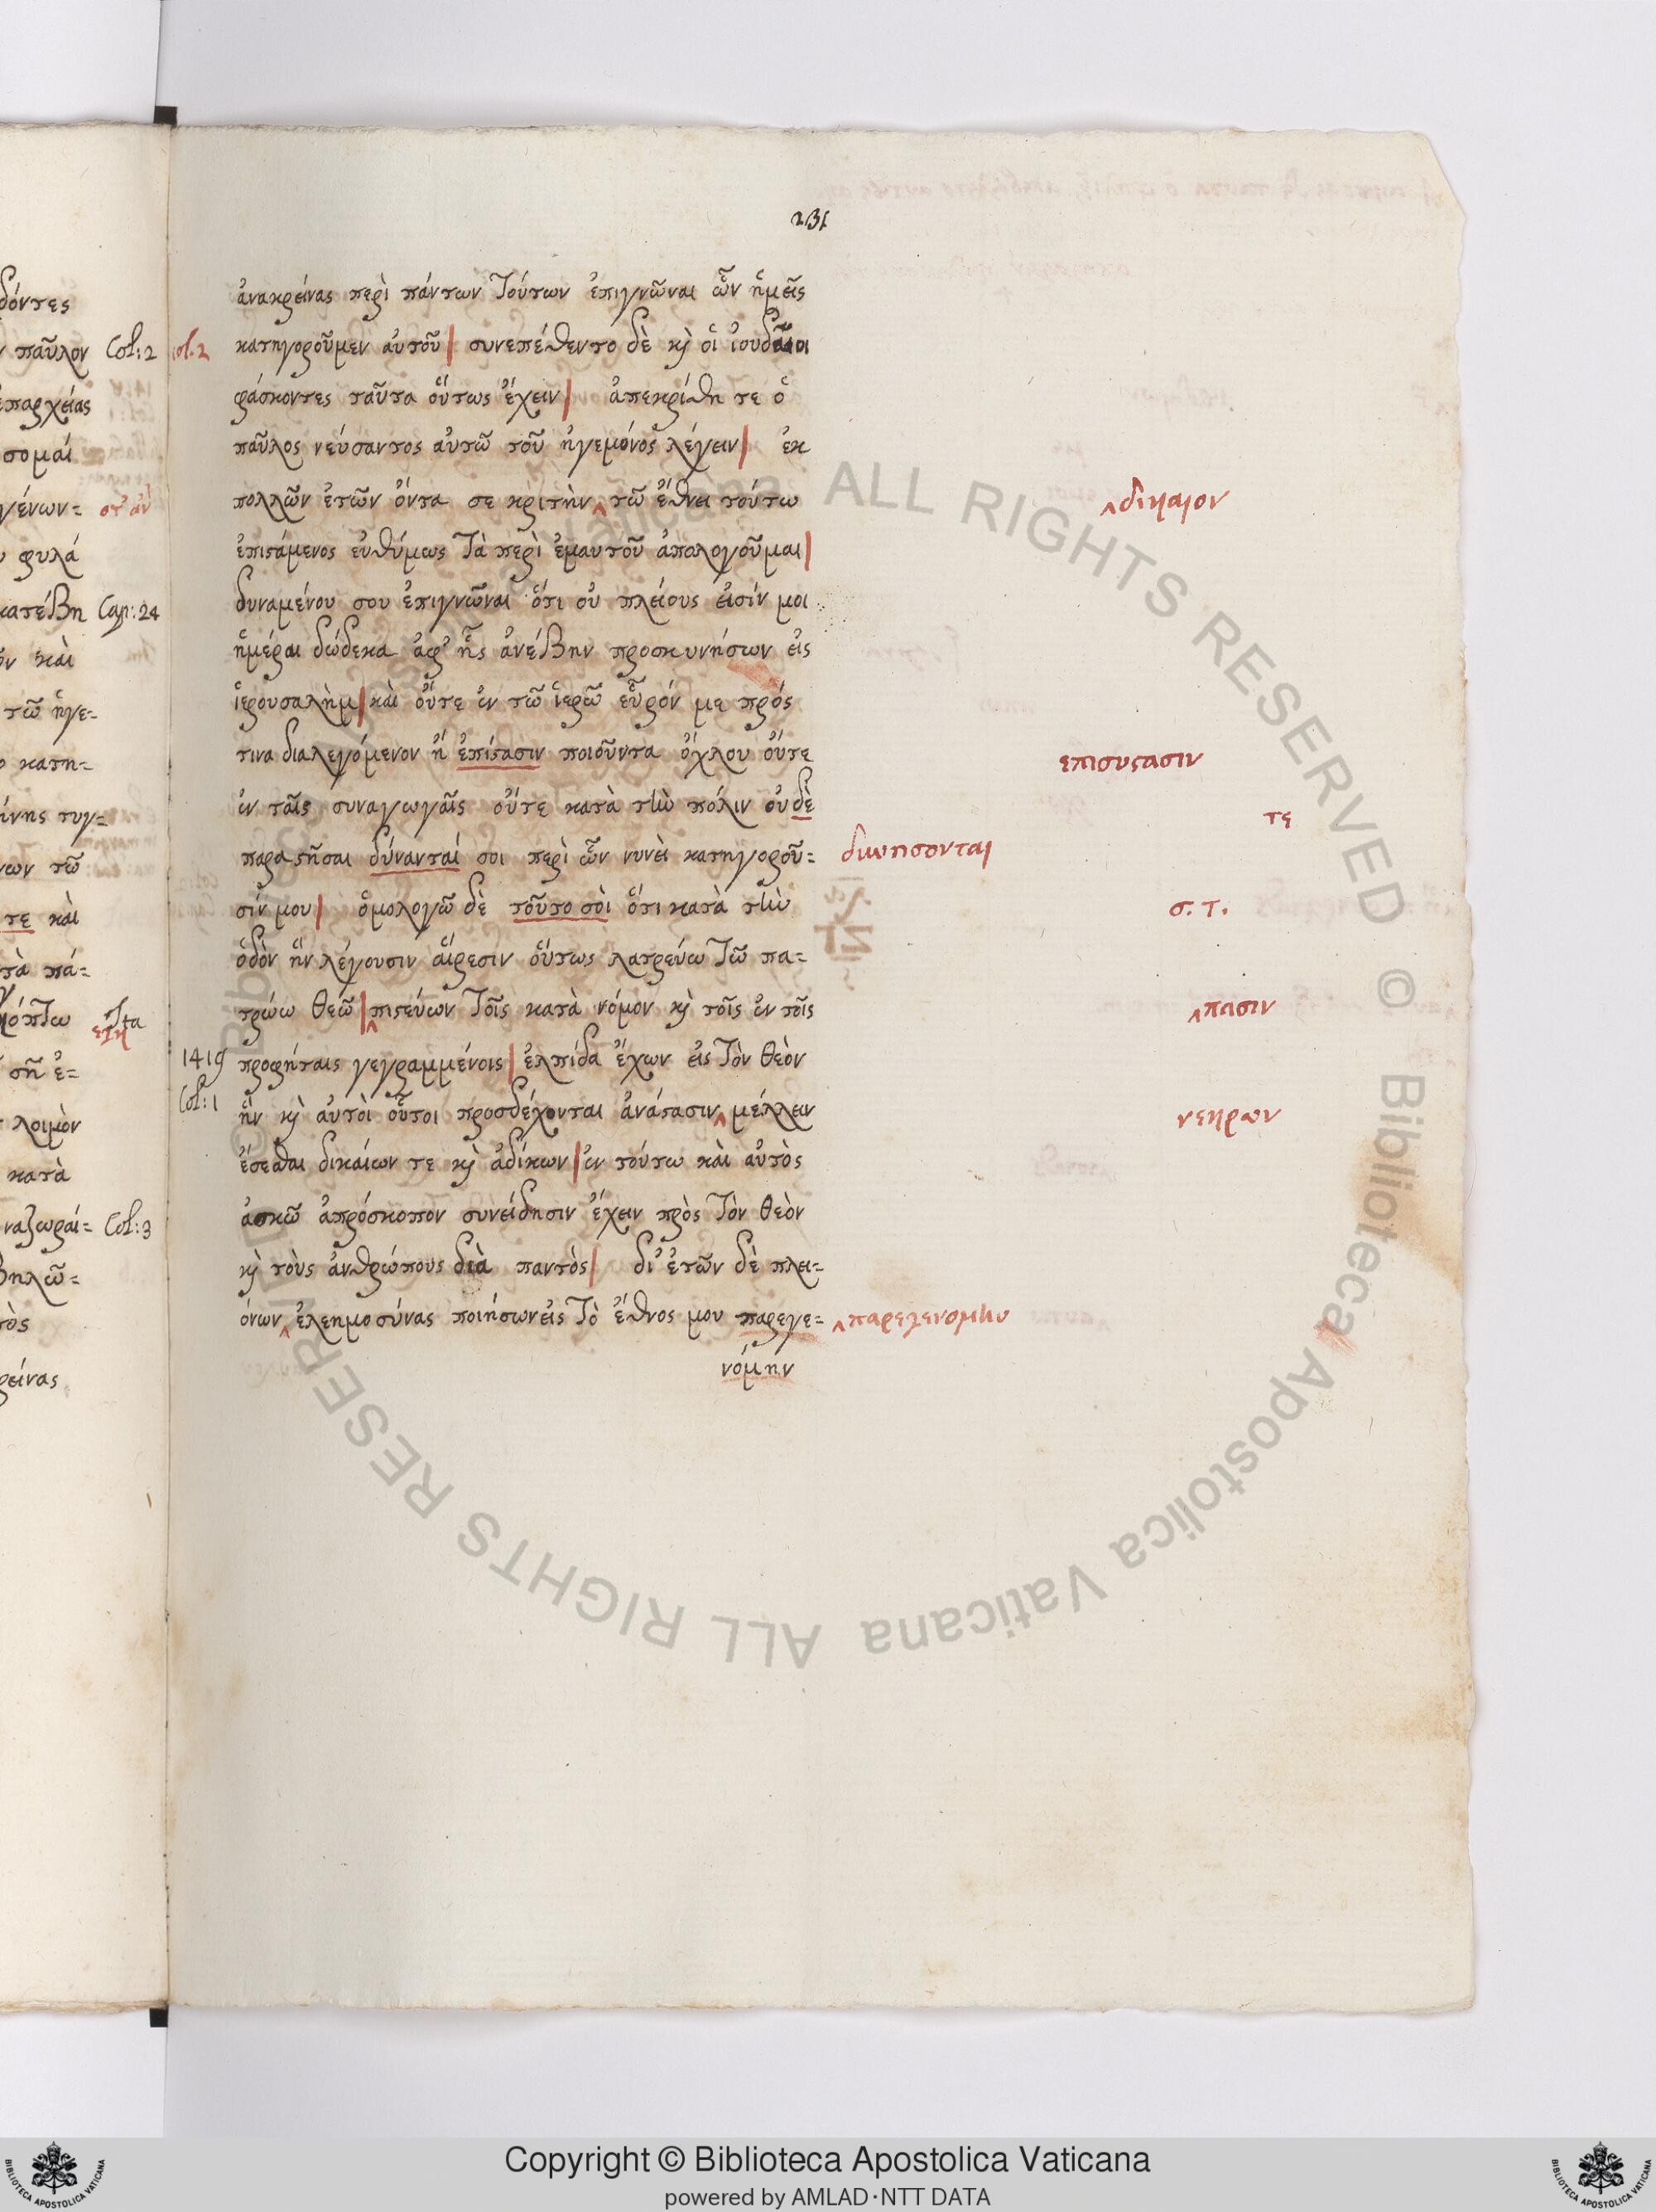 231
ἀνακρείνας περὶ πάντων τούτων ἐπιγνῶναι ὧν ἡμεῖς
κατηγοροῦμεν αὐτοῦ| συνεπέθεντο δὲ κὶ οἱ ἰουδαῖοι
φάσκοντες ταῦτα οὕτως ἔχειν| ἀπεκρίθη τε ὁ
παῦλος νεύσαντος αὐτῶ τοῦ ἡγεμόνος λέγειν| ἐκ
πολλῶν ἐτῶν ὄντα σε κριτὴν ‸ τῶ ἔθνει τούτω ‸δικαιον
ἐπιστάμενος εὐθύμως τὰ περὶ ἐμαυτοῦ ἀπολογοῦμαι|
δυναμένου σου ἐπιγνῶναι ὅτι οὐ πλείους εἰσίν μοι
ἡμέραι δώδεκα ἀφ' ἧς ἀνέβην προσκυνήσων εἰς
ἱερουσαλὴμ| καὶ οὔτε ἐν τῶ ἱερῶ εὗρόν με πρός
τινα διαλεγόμενον ἢ ἐπίστασιν ποιοῦντα ὄχλου οὔτε επισυστασιν
ἐν ταῖς συναγωγαῖς οὔτε κατὰ τὴν πόλιν οὐδὲ τε
παραστῆσαι δύνανταί σοι περὶ ὧν νυνὲι κατηγοροῦ= δυνησονται
σίν μου| ὁμολογῶ δὲ τοῦτο σὸι ὅτι κατὰ τὴν σ. τ.
ὁδὸν ἣν λέγουσιν αἵρεσιν οὕτως λατρεύω τῶ πα=
τρώω θεῶ| ‸ πιστεύων τοῖς κατὰ νόμον κὶ τοῖς ἐν τοῖς ‸πασιν
1419 προφήταις γεγραμμένοις| ἐλπίδα ἔχων εἰς τὸν θεὸν
Col: 1 ἣν κὶ αὐτὸι οὗτοι προσδέχονται ἀνάστασιν ‸ μέλλειν νεκρων
ἔσεσθαι δικαίων τε κὶ ἀδίκων| ἐν τούτω καὶ αὐτὸς
ἀσκῶ ἀπρόσκοπον συνείδησιν ἔχειν πρὸς τὸν θεὸν
κὶ τοὺς ἀνθρώπους διὰ παντὸς| δι' ἐτῶν δὲ πλει=
όνων ‸ ἐλεημοσύνας ποιήσων εἰς τὸ ἔθνος μου παρεγε= ‸παρεγενομην
νόμην
δόντες
παῦλον Col: 2
επαρχείας
σομαί
γένων=
φυλά
κατέβη Cap: 24
καὶ
τῶ ἡγε=
κατη=
τυγ=
τῶ
τε καὶ
τὰ πά=
Ita
σῆ ἐ=
λοιμὸν
κατὰ
ναζωραί= Col: 3
βηλῶ=
ρείνας
Copyright © Biblioteca Apostolica Vaticana
powered by AMLAD·NTT DATA